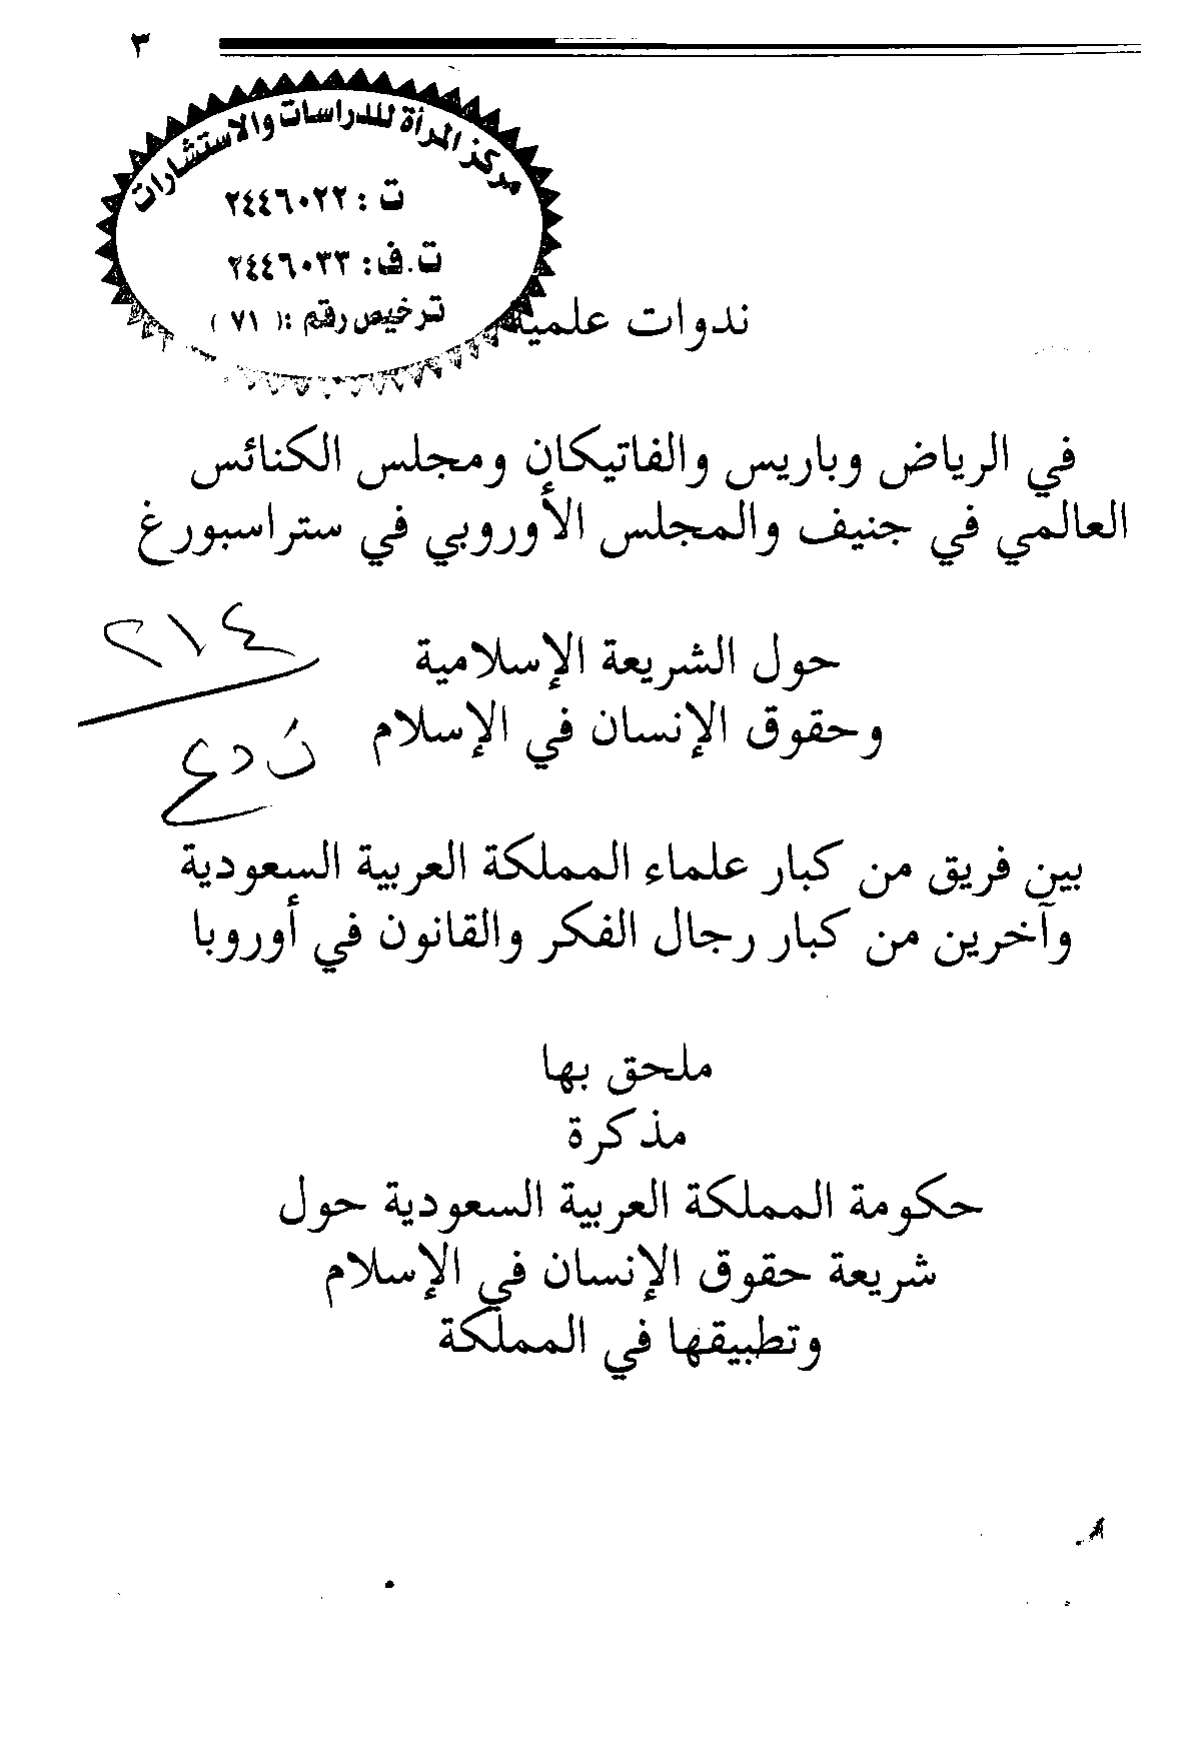 ٣
مركز المرأة للدراسات والاستشارات
ت : ٢٤٤٦٠٢٢
ت.ف: ٢٤٤٦٠٣٣
ترخيص رقم :( ٧١ )
ندوات علمية
في الرياض وباريس والفاتيكان ومجلس الكنائس
العالمي في جنيف والمجلس الأوروبي في ستراسبورغ
٢١٤
حول الشريعة الإسلامية
وحقوق الإنسان في الإسلام
ن د ع
بين فريق من كبار علماء المملكة العربية السعودية
وآخرين من كبار رجال الفكر والقانون في أوروبا
ملحق بها
مذكرة
حكومة المملكة العربية السعودية حول
شريعة حقوق الإنسان في الإسلام
وتطبيقها في المملكة